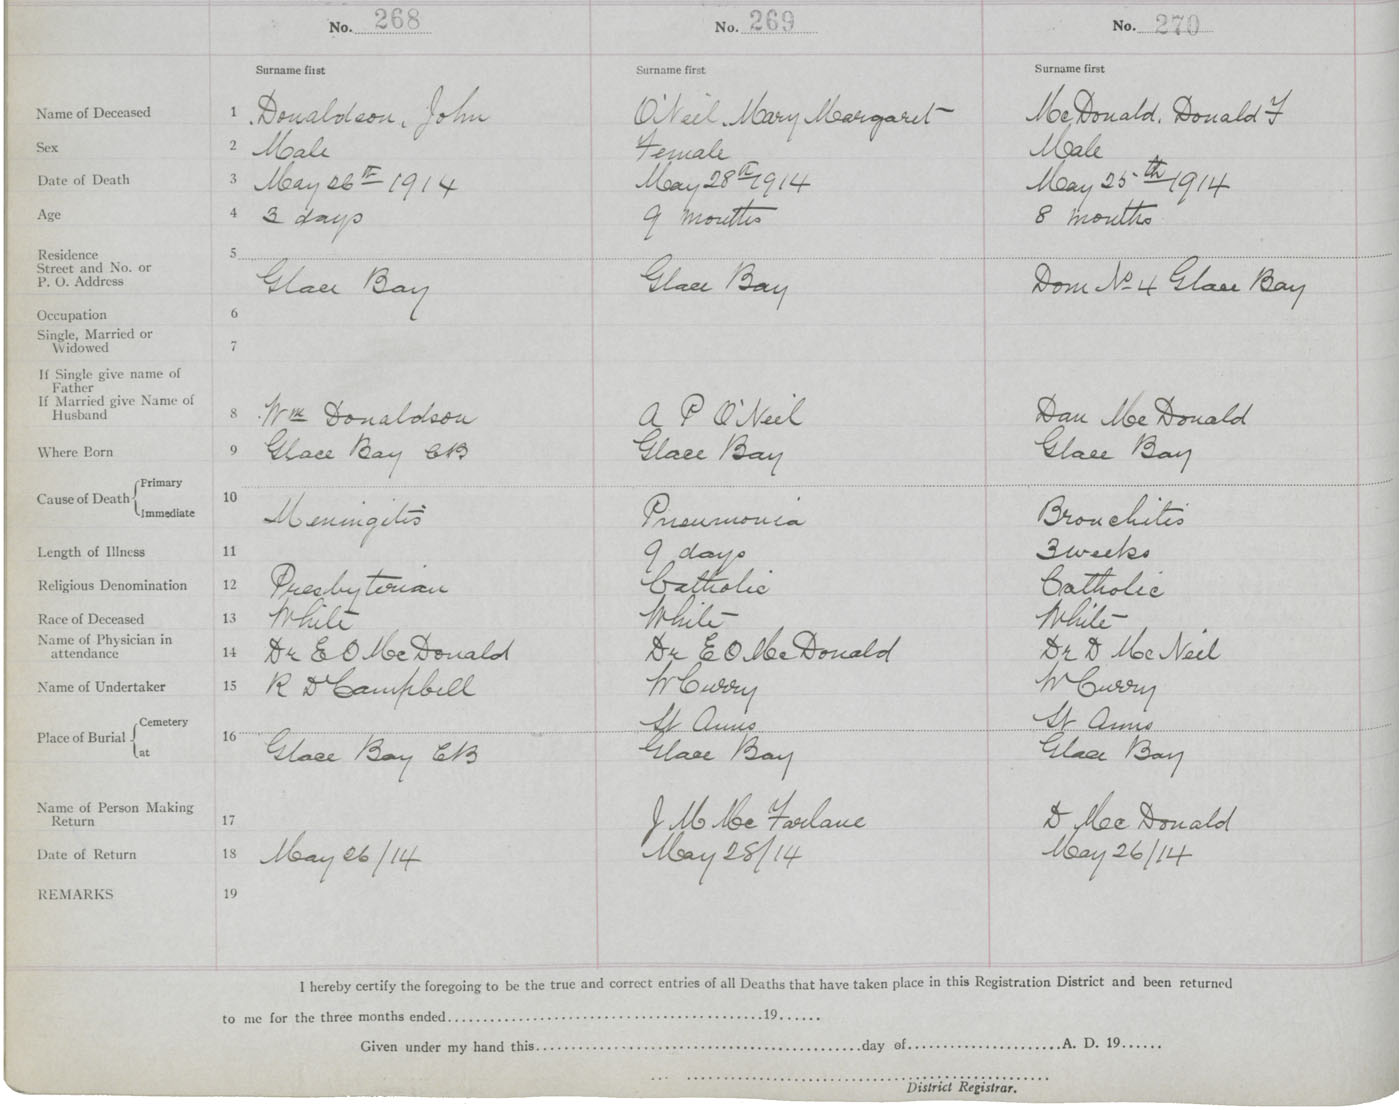 No. 268 No. 269 No. 270
Surname first Surname first Surname first
Name of Deceased 1 Donaldson, John O'Neil Mary Margaret McDonald, Donald F
Sex 2 Male Female Male
Date of Death 3 May 26th 1914 May 28th 1914 May 25th 1914
Age 4 3 days 9 months 8 months
Residence 5
Street and No. or
P. O. Address Glace Bay Glace Bay Dom No 4 Glace Bay
Occupation 6
Single, Married or
Widowed 7
If Single give name of
Father
If Married give Name of
Husband 8 Wm Donaldson A P O'Neil Dan McDonald
Where Born 9 Glace Bay CB Glace Bay Glace Bay
Cause of Death { Primary 10
Immediate Meningitis Pneumonia Bronchitis
Length of Illness 11 9 days 3 weeks
Religious Denomination 12 Presbyterian Catholic Catholic
Race of Deceased 13 White White White
Name of Physician in
attendance 14 Dr E O McDonald Dr E O McDonald Dr D McNeil
Name of Undertaker 15 R D Campbell W Curry W Curry
Place of Burial { Cemetery 16 St Anns St Anns
at Glace Bay CB Glace Bay Glace Bay
Name of Person Making
Return 17 J M McFarlane D McDonald
Date of Return 18 May 26/14 May 28/14 May 26/14
REMARKS 19
I hereby certify the foregoing to be the true and correct entries of all Deaths that have taken place in this Registration District and been returned
to me for the three months ended..........19......
Given under my hand this..........day of..........A. D. 19......
District Registrar.